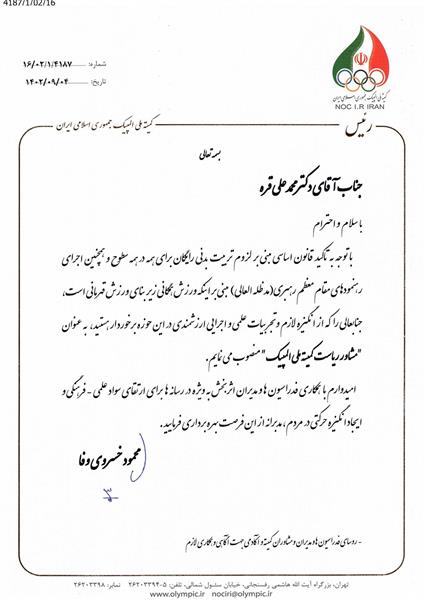 4187/1/02/16
شماره: ۱۶/۰۲/۱/۴۱۸۷
تاریخ: ۱۴۰۲/۰۹/۰۴
کمیته ملی المپیک جمهوری اسلامی ایران
NOC I.R IRAN
رئیس
کمیته ملی المپیک جمهوری اسلامی ایران
بسمه تعالی
جناب آقای دکتر محمد علی قره
با سلام و احترام
با توجه به تاکید قانون اساسی مبنی بر لزوم تربیت بدنی رایگان برای همه در همه سطوح و همچنین اجرای
رهنمودهای مقام معظم رهبری (مدظله العالی) مبنی بر اینکه ورزش همگانی زیر بنای ورزش قهرمانی است،
جنابعالی را که از انگیزه لازم و تجربیات علمی و اجرایی ارزشمندی در این حوزه برخوردار هستید، به عنوان
"مشاور ریاست کمیته ملی المپیک" منصوب می نمایم.
امیدوارم با همکاری فدراسیون ها و مدیران اثر بخش به ویژه در رسانه ها برای ارتقای سواد علمی - فرهنگی و
ایجاد انگیزه حرکتی در مردم، مدبرانه از این فرصت بهره برداری فرمایید.
محمود خسروی وفا
- روسای فدراسیون ها و مدیران و مشاوران کمیته و آکادمی جهت آگاهی و همکاری لازم
تهران، بزرگراه آیت الله هاشمی رفسنجانی، خیابان سئول شمالی، تلفن: ۵-۲۶۲۰۳۳۹۴ نمابر: ۲۶۲۰۳۳۹۸
www.olympic.ir nociri@olympic.ir